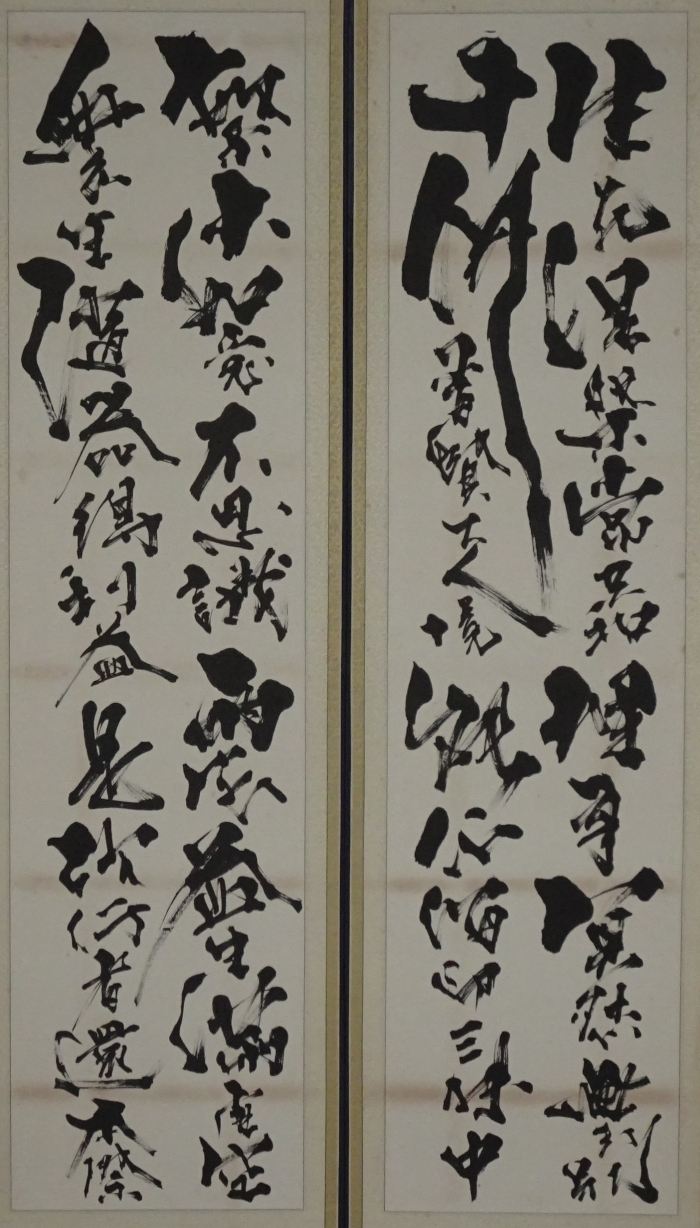 生死涅槃常共和理事冥然無分別
十佛普賢大人境能仁海印三昧中
繁出如意不思議雨寶益生滿虛空
衆生隨器得利益是故行者還本際